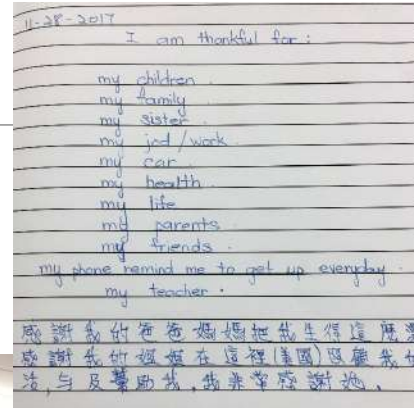 11-28-2017
I am thankful for:
my children.
my family.
my sister.
my jod/work
my car.
my health.
my life
my parents.
my friends.
my phone remind me to get up everyday.
my teacher.
感謝我的爸爸媽媽把我生得這麼
感謝我的姐姐在這裡(美國)照顧我
活,与及幫助我,我非常感謝她。